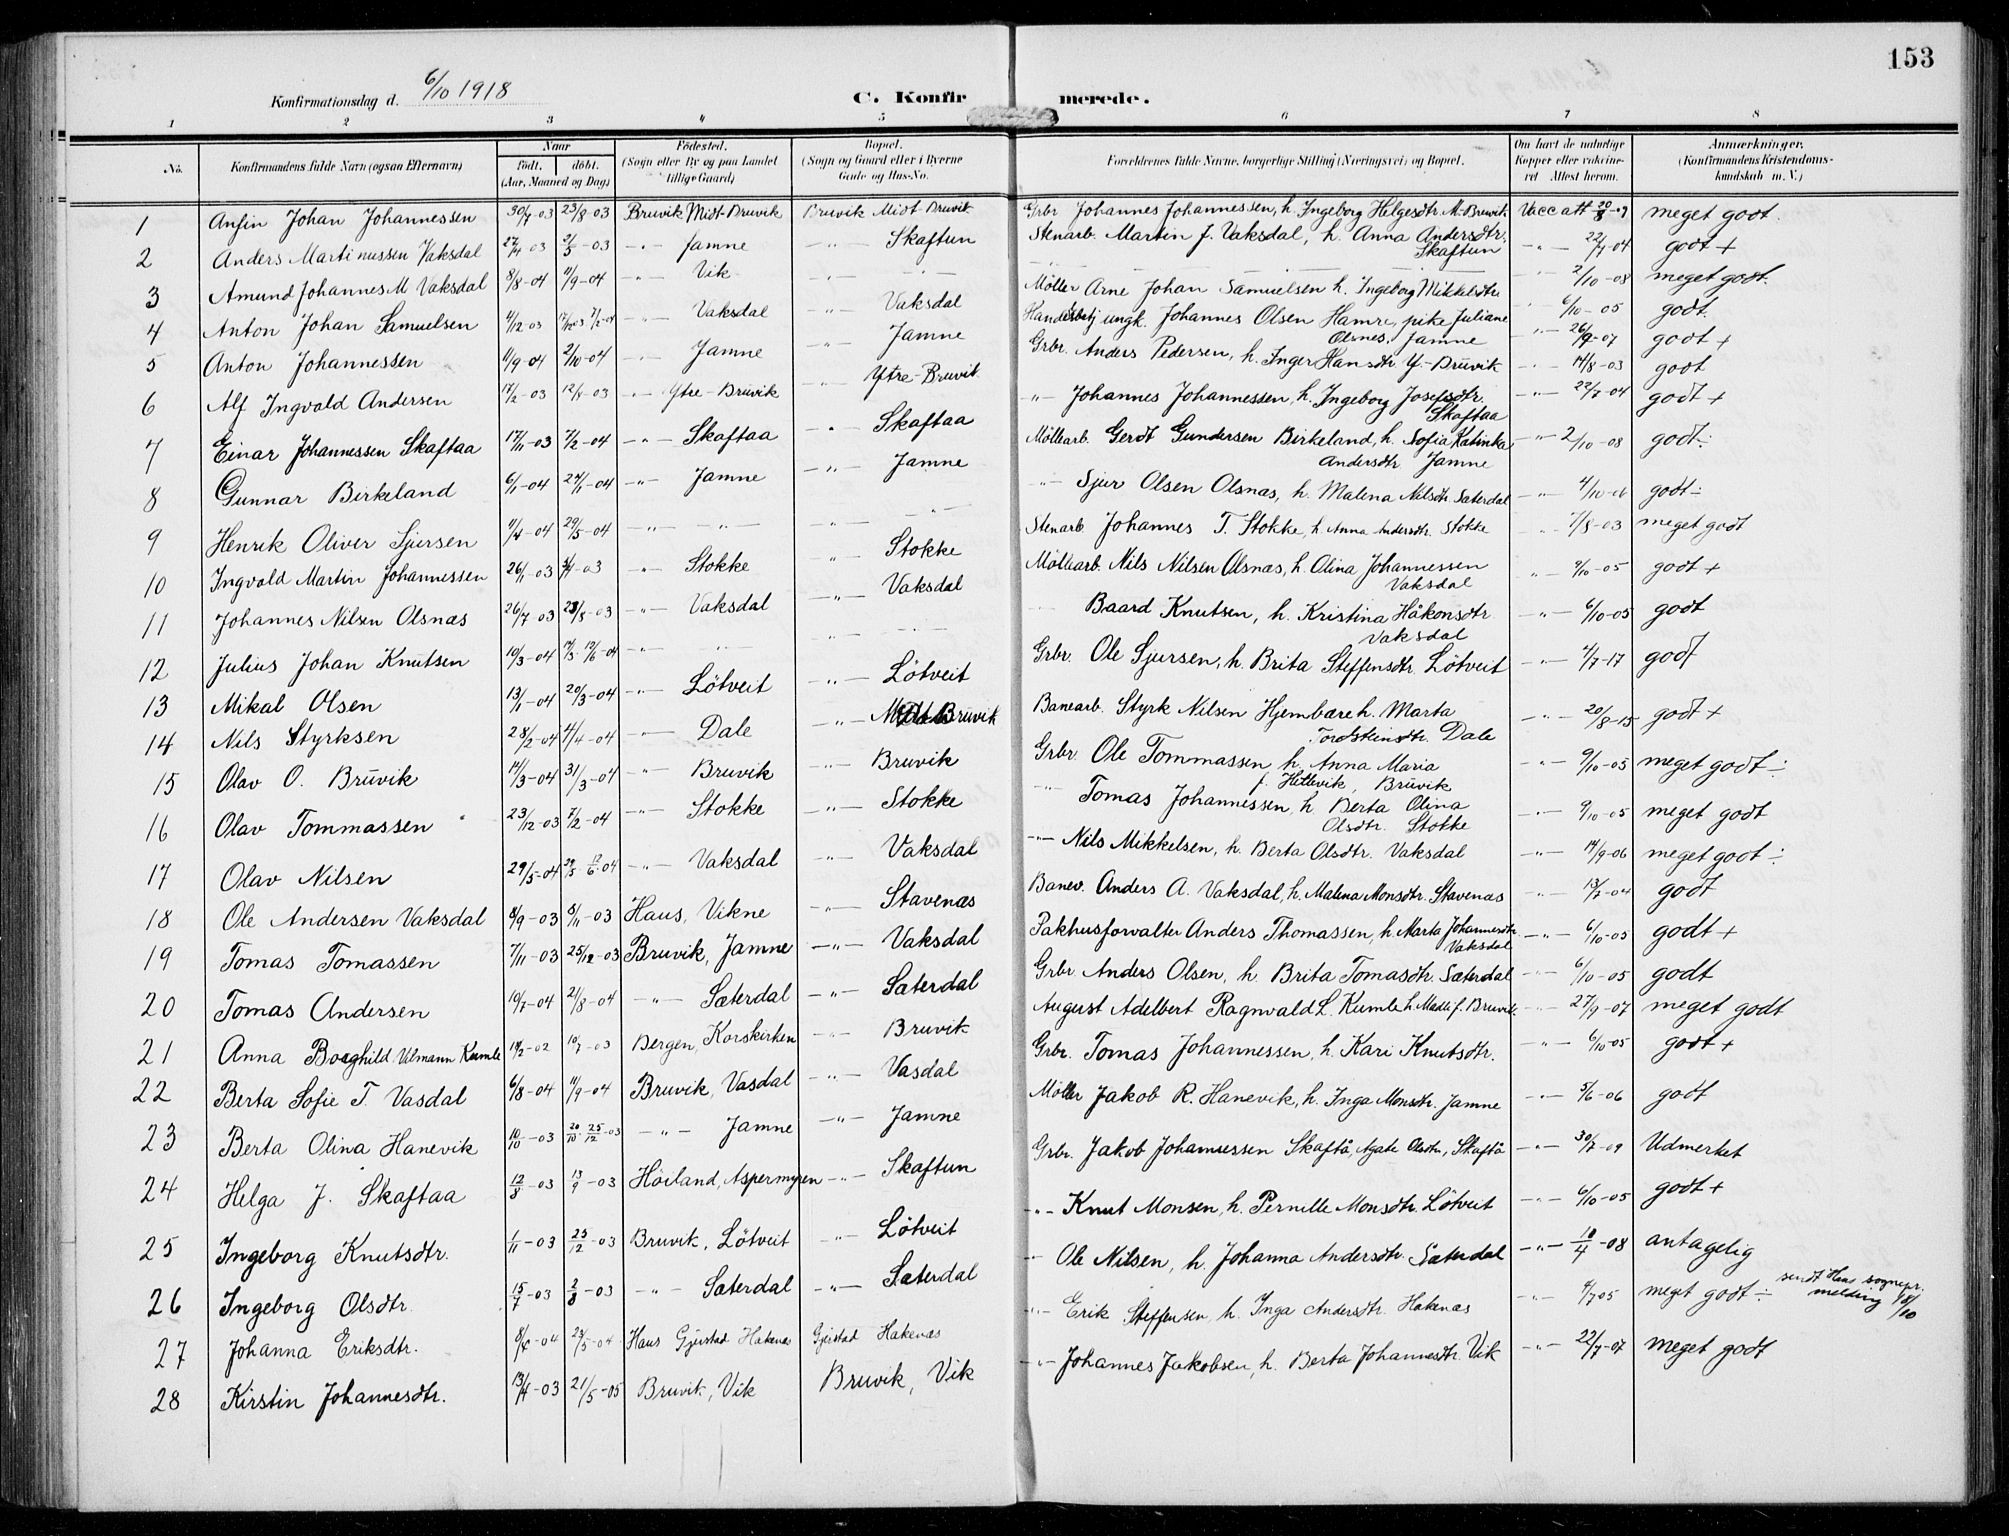 153
Konfirmationsdag d. 6/10 1918
C. Konfirmerede.
1 2 3 4 5 6 7 8
No. Konfirmandens fulde Navn (ogsaa Efternavn) Naar født. døbt. (Aar, Maaned og Dag) Fødested. (Sogn eller By og paa Landet tillige Gaard) Bopæl. (Sogn og Gaard eller i Byerne Gade og Hus-No. Forældrenes fulde Navne, borgerlige Stilling (Næringsvei) og Bopæl. Om havt de naturlige Kopper eller vakcineret Attest herom. Anmærkninger. (Konfirmandens Kristendomskundskab m. V.)
1 Anfin Johan Johannessen 30/7-03 23/8-03 Bruvik Midt-Bruvik Bruvik Midt-Bruvik Grbr Johannes Johannessen, h. Ingeborg Helgesdtr. M-Bruvik Vacc att 20/8-07 meget godt.
2 Anders Martinussen Vaksdal 27/4 03 2/5-03 -"- Jamne -"- Skaftun Stenarb. Martin J. Vaksdal, h. Anna Andersdtr. Skaftun -"- 22/7-04 godt +
3 Amund Johannes M Vaksdal 8/8-04 11/9-04 -"- Vik -"- -"- -"- 2/10-08 meget godt.
4 Anton Johan Samuelsen 4/12-03 7/2-04 -"- Vaksdal -"- Vaksdal Möller Arne Johan Samuelsen h. Ingeborg Mikkelsdtr " 6/10-05 godt.
5 Anton Johannessen 11/9-04 2/10-04 -"- Jamne -"- Jamne ungk. Johannes Olsen Hamre, pike Juliane Olsnes, Jamne -"- 26/9-07 godt +
6 Alf Ingvald Andersen 17/2-03 12/4-03 -"- Ytre-Bruvik -"- Ytre-Bruvik Grbr. Anders Pedersen, h. Inger Hansdtr Y.-Bruvik -"- 14/8-03 godt
7 Einar Johannessen Skaftaa 17/11-03 7/2-04 -"- Skaftaa -"- Skaftaa -"- Johannes Johannessen, h. Ingeborg Josefsdtr. Skaftaa -"- 22/7-04 godt +
8 Gunnar Birkeland 6/1-04 24/1-04 -"- Jamne -"- Jamne Möllearb. Gerdt Gundersen Birkeland, h. Sofia Katinka Andersdtr Jamne -"- 2/10-08 godt÷
9 Henrik Oliver Sjursen 11/4-04 29/5-04 -"- -"- -"- -"- -"- Sjur Olsen Olsnas, h. Malena Nilsdtr. Saterdal -"- 4/10-06 godt÷
10 Ingvald Martin Johannessen 26/1-03 -03 -"- Stokke " Stokke Stenarb Johannes T. Stokke, h Anna Andersdtr. Stokke " 7/8-03 meget godt
11 Johannes Nilsen Olsnas 26/7-03 23/8-03 -"- Vaksdal -"- Vaksdal Möllearb. Nils Nilsen Olsnas, h. Olina Johannessen Vaksdal " 9/10-05 godt +
12 Julius Johan Knutsen 10/3-04 -04 -"- -"- -"- -"- Baard Knutsen, h. Kristina Håkonsdtr. Vaksdal -"- 6/10-05 godt
13 Mikal Olsen 13/1-04 20/3-04 -"- Lötveit -"- Lötveit Grbr. Ole Sjursen, h. Brita Steffensdtr. Lötveit -"- 4/7-17 godt
14 Nils Styrksen 28/2-04 4/4-04 -"- Dale -"- Bruvik Banearb. Styrk Nilsen Hjembære h. Marta Tordsteinsdtr. Dale -"- 20/8-15 godt +
15 Olav O. Bruvik 14/3-04 31/3-04 -"- Bruvik -"- Bruvik Grbr. Ole Tommassen h. Anna Maria f. Hettevik, Bruvik -"- 9/10-05 meget godt÷
16 Olav Tommassen 23/12-03 7/2-04 -"- Stokke -"- Stokke -"- Tomas Johannessen, h Berta Olina Olsdtr. Stokke -"- 9/10-05 meget godt
17 Olav Nilsen 29/5-04 29/5 12/6-04 -"- Vaksdal -"- Vaksdal -"- Nils Mikkelsen, h. Berta Olsdtr. Vaksdal -"- 14/9-06 meget godt÷
18 Ole Andersen Vaksdal 8/9-03 8/11-03 Haus, Vikne -"- Stavenæs Banev. Anders A. Vaksdal, h. Malena Monsdtr. Stavenæs -"- 13/7-04 godt
19 Tomas Tomassen 7/11-03 25/12-03 Bruvik, Jamne -"- Vaksdal Pakhusforvalter Anders Thomassen, h. Marta Johannesdtr Vaksdal -"- 6/10-05 godt +
20 Tomas Andersen 19/7-04 21/8-04 -"- Sæterdal -"- Sæterdal Grbr. Anders Olsen, h. Brita Tomasdtr. Sæterdal -"- 6/10-05 godt
21 Anna Borghild Vilmann Kumle -02 10/7-03 Bergen, Korskirken -"- Bruvik August Adelbert Ragnvald L. Kumle h. f. Bruvik -"- 27/9-07 meget godt
22 Berta Sofie T. Vasdal 6/8-04 11/9-04 Bruvik, Vasdal -"- Vasdal Grbr. Tomas Johannessen, h. Kari Knutsdtr. -"- 6/10-05 godt +
23 Berta Olina Hanevik 10/10-03 20/10 25/12-03 -"- Jamne -"- Jamne Möller Jakob R. Hanevik, h. Inga Monsdtr. Jamne -"- 5/6-06 godt
24 Helga J. Skaftaa 12/8-03 13/9-03 Höiland, Aspermyren -"- Skaftun Grbr. Jakob Johannessen Skaftå, Agate Olsdtr, Skaftå -"- 30/7-09 Udmerket
25 Ingeborg Knutsdtr. 1/11-03 25/12-03 Bruvik, Lötveit -"- Lötveit -"- Knut Monsen, h. Pernille Monsdtr. Lötveit -"- 6/10-05 godt +
26 Ingeborg Olsdtr. 15/7-03 2/8-03 -"- Sæterdal -"- Sæterdal -"- Ole Nilsen, h. Johanna Andersdtr. Sæterdal -"- 18/4-08 antagelig
27 Johanna Eriksdtr. -04 23/5-04 Haus Gjerstad Hakenæs Gjerstad Hakenæs -"- Erik Steffensen, h. Inga Andersdtr. Hakenæs -"- 4/7 05 meget godt÷ sendt Haus sognepr. melding 8/10
28 Kirstin Johannesdtr. 13/4-03 21/5-05 Bruvik, Vik Bruvik, Vik -"- Johannes Jakobsen, h. Berta Johannesdtr. Vik -"- 22/7-07 meget godt